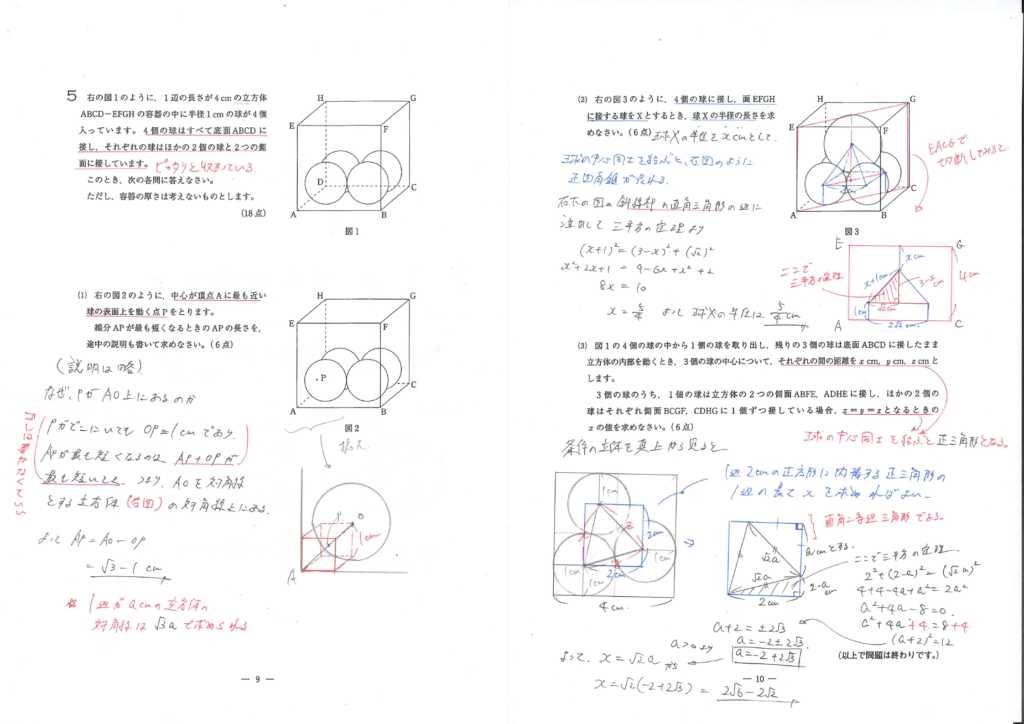 5 右の図1のように，1辺の長さが4cmの立方体
ABCD－EFGHの容器の中に半径1cmの球が4個
入っています。4個の球はすべて底面ABCDに
接し，それぞれの球はほかの2個の球と2つの側
面に接しています。ピッタリと収まっている.
このとき，次の各問に答えなさい。
ただし，容器の厚さは考えないものとします。
(18点)
H
G
E
F
D
C
A
B
図1
(1) 右の図2のように，中心が頂点Aに最も近い
球の表面上を動く点Pをとります。
線分APが最も短くなるときのAPの長さを，
途中の説明も書いて求めなさい。(6点)
H
G
E
F
P
C
A
B
図2
(説明は略)
なぜ、PがAO上にあるのか
PがどこにいてもOP=1cmであり、
APが最も短くなるのは AP+OPが
最も短いとき. つまり、AOを対角線
とする立方体(右図)の対角線上にある.
よって AP=AO-OP
=√3-1 cm
☆ 1辺がacmの立方体の
対角線は√3aで求められる
拡大
P
O
1cm
A
― 9 ―
(2) 右の図3のように，4個の球に接し，面EFGH
に接する球をXとするとき，球Xの半径の長さを求
めなさい。(6点) 球Xの半径をxcmとして.
球の中心同士を結ぶと、右図のように
正四角錐が表れる.
右下の図の斜線部の直角三角形の辺に
注目して三平方の定理より
(x+1)²=(3-x)²+(√2)²
x²+2x+1 = 9-6x+x²+2
8x=10
x=5/4 よって球Xの半径は 5/4 cm
H
G
E
F
C
A
B
図3
EACGで
切断してみると
E
G
xcm
ここで
三平方の定理
x+1cm
3-x cm
4cm
1cm
√2cm
A
2√2cm
C
(3) 図1の4個の球の中から1個の球を取り出し，残りの3個の球は底面ABCDに接したまま
立方体の内部を動くとき，3個の球の中心について，それぞれの間の距離をx cm，y cm，z cmと
します。
3個の球のうち，1個の球は立方体の2つの側面ABFE，ADHEに接し，ほかの2個の
球はそれぞれ側面BCGF，CDHGに1個ずつ接している場合，x＝y＝zとなるときの
xの値を求めなさい。(6点)
球の中心同士を結ぶと正三角形となる.
条件の立体を真上から見ると
1cm
2cm
1cm
2cm
1cm
4cm.
1辺2cmの正方形に内接する正三角形の
1辺の長さxを求めればよい.
直角二等辺三角形である.
acmとする.
√2a
√2a
2-a cm
2cm
ここで三平方の定理.
2²+(2-a)²=(√2a)²
4+4-4a+a²=2a²
a²+4a-8=0.
a²+4a+4=8+4
(a+2)²=12
a+2=±2√3
a=-2±2√3
a>0より
a=-2+2√3
よって. x=√2a から
x=√2(-2+2√3) = 2√6-2√2
(以上で問題は終わりです。)
― 10 ―